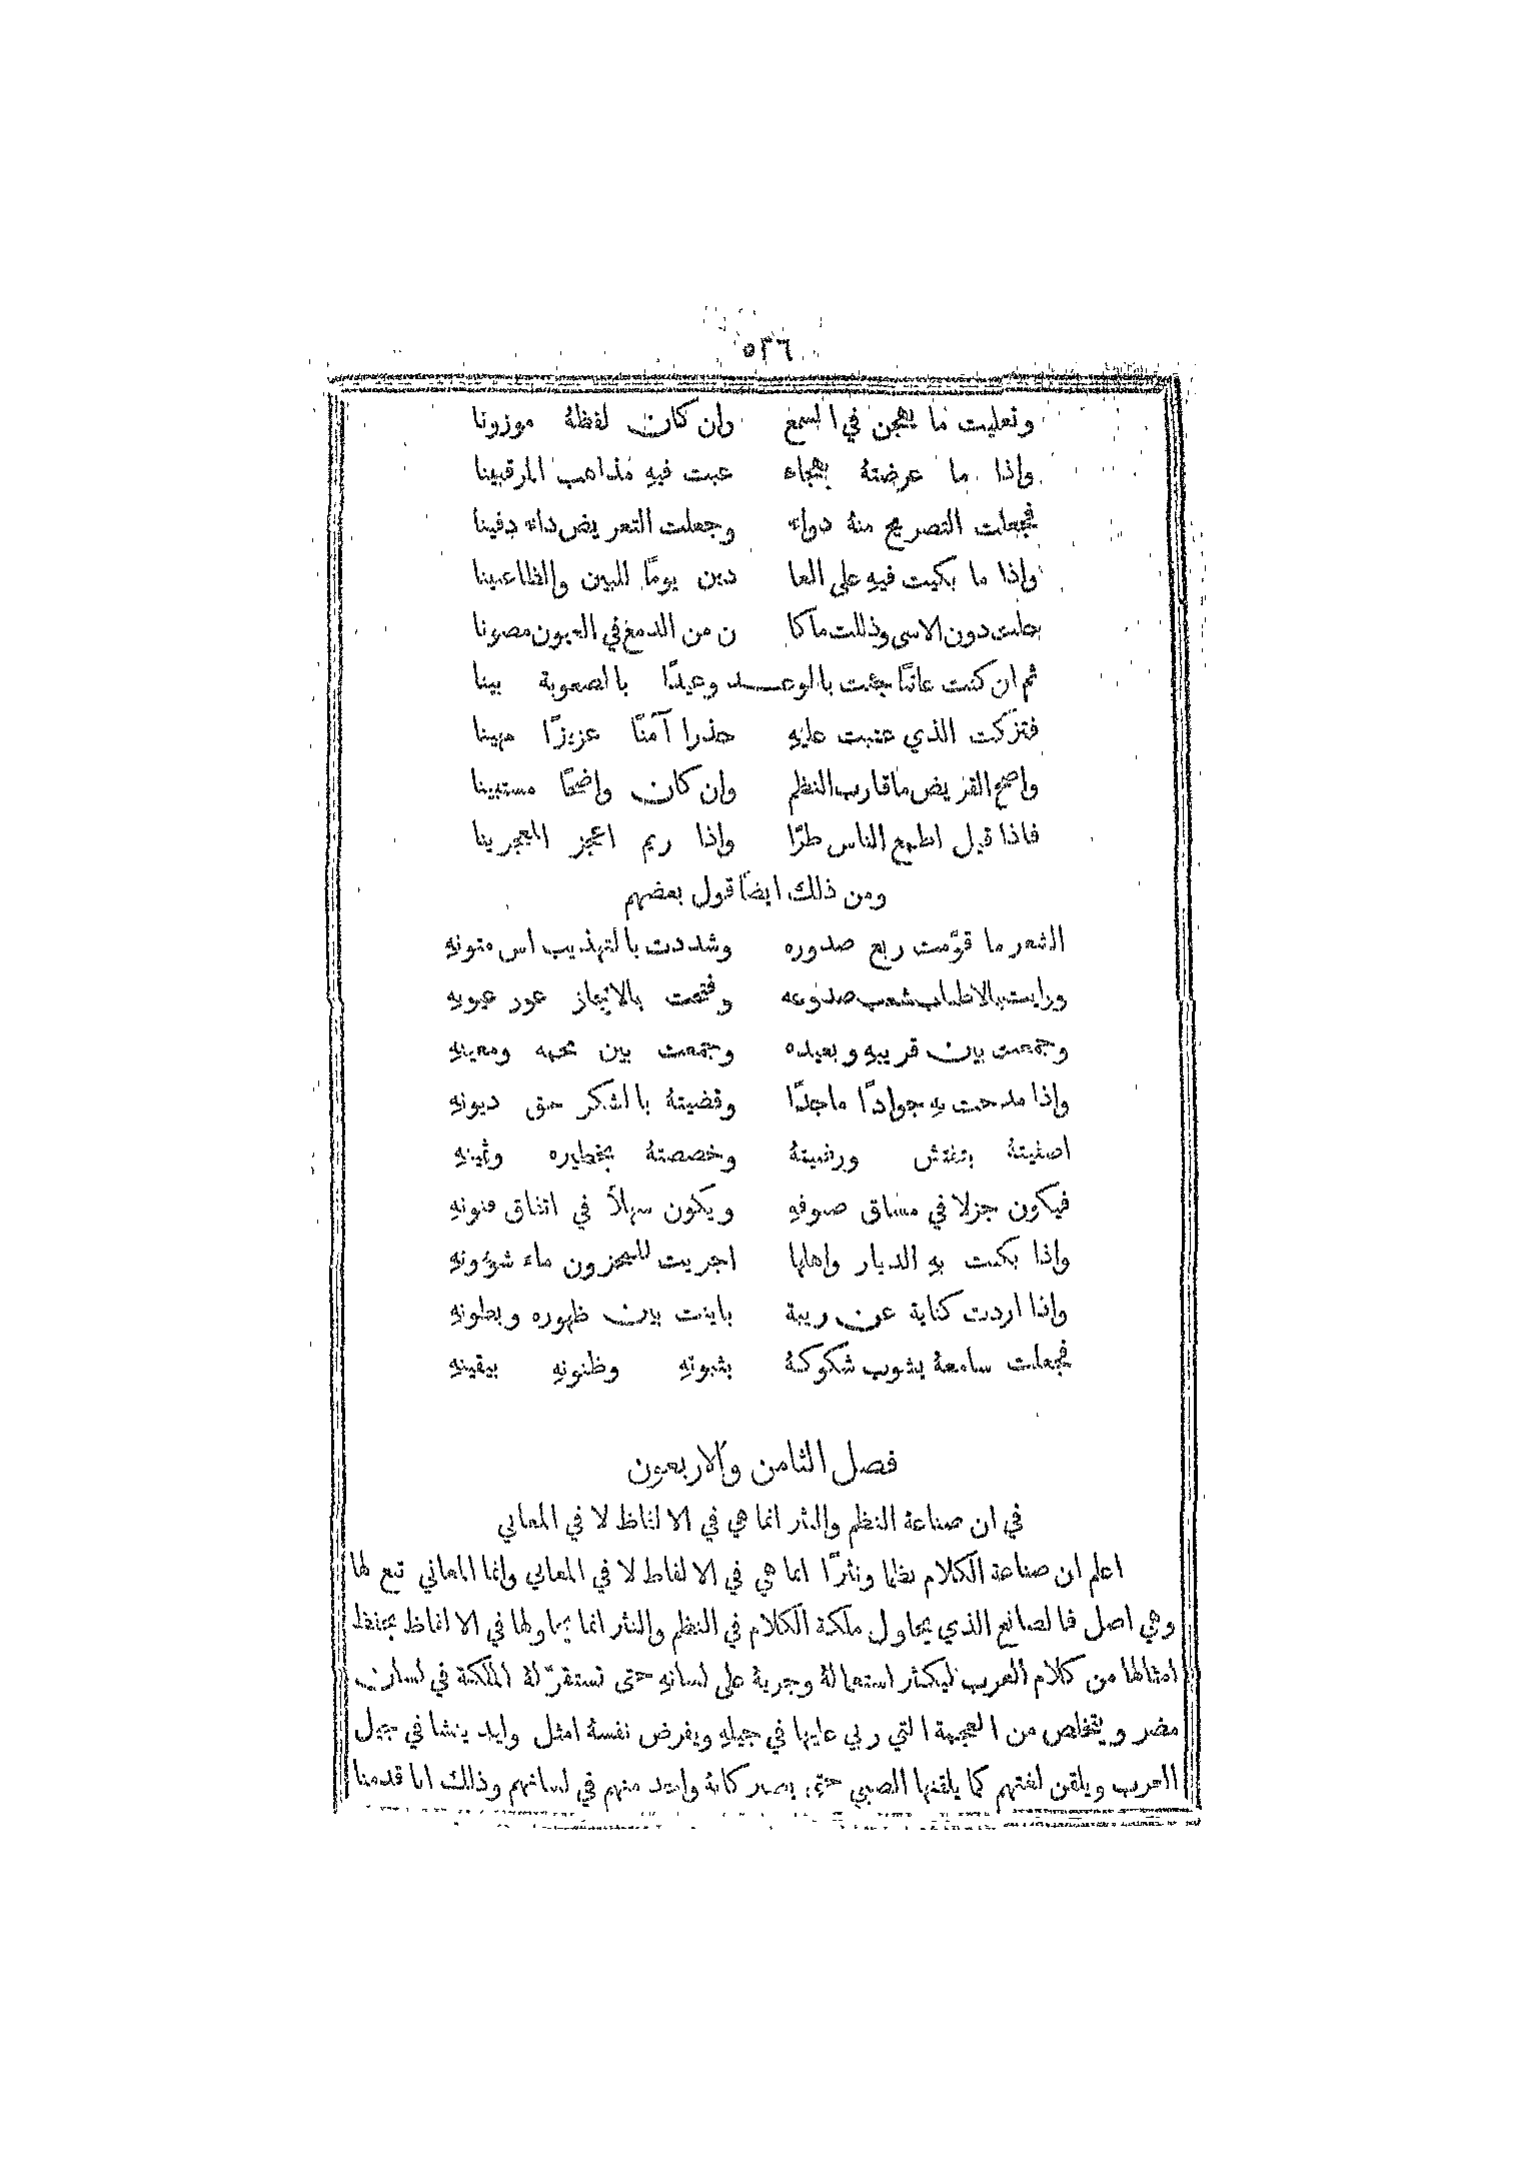 ٥٣٦
وتعليت ما يهجن في السمع وان كان لفظهُ موزونا
واذا ما عرضتهُ بهجاء عبت فيهِ مذاهب المرقبينا
فجعلت التصريح منهُ دواء وجعلت التعريض داء دفينا
واذا ما بكيت فيهِ على الغا دين يومًا للبين والظاعنينا
حلت دون الاسى وذللت ما كا ن من الدمع في العيون مصونا
ثم ان كنت عاتبًا جئت بالوعـــد وعيدًا بالصعوبة بينا
فتركت الذي عتبت عليهِ حذرا آمنًا عزيزًا مهينا
واصح القريض ما قارب النظم وان كان واضحًا مستبينا
فاذا قيل اطمع الناس طرًّا واذا ريم اعجز المعجزينا
ومن ذلك ايضًا قول بعضهم
الشعر ما قوّمت ربع صدوره وشددت بالتهذيب اس متونهِ
ورايت بالاطناب شعب صدوعه وفتحت بالايجاز عور عيونهِ
وجمعت بين قريبهِ وبعيده وجمعت بين مجمه ومعينهِ
واذا مدحت بهِ جوادًا ماجدًا وقضيتهُ بالشكر حق ديونهِ
اصفيتهُ بتفتش ورضيتهُ وخصصتهُ بخطيره وثمينهِ
فيكون جزلا في مساق صنوفهِ ويكون سهلاً في اتفاق فنونهِ
واذا بكيت بهِ الديار واهلها اجريت للمحزون ماء شوءونهِ
واذا اردت كناية عن ريبة باينت بين ظهوره وبطونهِ
فجعلت سامعهُ يشوب شكوكهُ بثبوتهِ وظنونهِ بيقينهِ
فصل الثامن والاربعون
في ان صناعة النظم والنثر انما هي في الالفاظ لا في المعاني
اعلم ان صناعة الكلام نظما ونثرًا انما هي في الالفاظ لا في المعاني وانما المعاني تبع لها
وهي اصل فالصانع الذي يحاول ملكة الكلام في النظم والنثر انما يحاولها في الالفاظ بحفظ
امثالها من كلام العرب ليكثر استعمالهُ وجريهُ على لسانهِ حتى تستقرّ لهُ الملكة في لسان
مضر ويتخلص من العجمة التي ربي عليها في جيلهِ ويفرض نفسهُ مثل وليد ينشا في جيل
العرب ويلقن لغتهم كما يلقنها الصبي حتى يصير كانهُ واحد منهم في لسانهم وذلك انا قدمنا